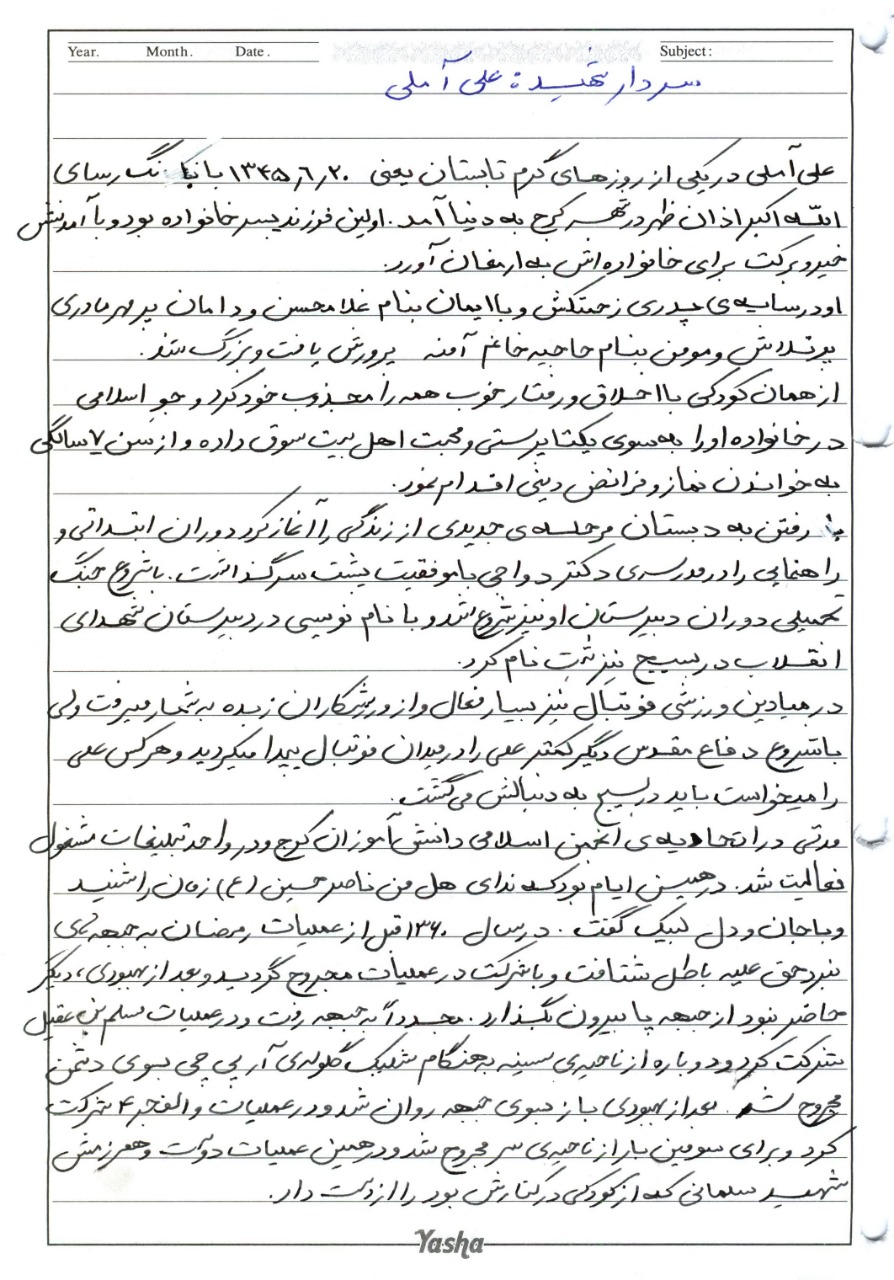 Year. Month. Date. Subject:
سردار شهید: علی آملی
علی آملی در یکی از روزهای گرم تابستان یعنی ۱۳۴۵٫۶٫۲۰ با بانگ رسای
الله اکبر اذان ظهر در شهر کرج به دنیا آمد. اولین فرزند پسر خانواده بود و با آمدنش
خیر و برکت برای خانواده‌اش به ارمغان آورد.
او در سایه‌ی پدری زحمتکش و با ایمان بنام غلامحسن و دامان پر مهر مادری
پرتلاش و مومن بنام حاجیه خانم آمنه پرورش یافت و بزرگ شد.
از همان کودکی با اخلاق و رفتار خوب همه را مجذوب خود کرد و جو اسلامی
در خانواده او را به سوی یکتاپرستی و محبت اهل بیت سوق داده و از سن ۷ سالگی
به خواندن نماز و فرائض دینی اقدام نمود.
با رفتن به دبستان مرحله‌ی جدیدی از زندگی را آغاز کرد دوران ابتدائی و
راهنمایی را در مدرسه‌ی دکتر دواچی با موفقیت پشت سر گذاشت. با شروع جنگ
تحمیلی دوران دبیرستان او نیز شروع شد و با نام نویسی در دبیرستان شهدای
انقلاب در بسیج نیز ثبت نام کرد.
در میادین ورزشی فوتبال نیز بسیار فعال و از ورزشکاران زبده به شمار میرفت ولی
با شروع دفاع مقدس دیگر کمتر علی را در میدان فوتبال پیدا میکردید و هر کس علی
را میخواست باید در بسیج به دنبالش می‌گشت.
مدتی در اتحادیه‌ی انجمن اسلامی دانش آموزان کرج و در واحد تبلیغات مشغول
فعالیت شد. در همین ایام بود که ندای هل من ناصر حسین (ع) زمان را شنید
و با جان و دل لبیک گفت. در سال ۱۳۶۰ قبل از عملیات رمضان به جبهه‌های
نبرد حق علیه باطل شتافت و با شرکت در عملیات مجروح گردید و بعد از بهبودی، دیگر
حاضر نبود از جبهه پا بیرون بگذارد. مجدداً به جبهه رفت و در عملیات مسلم بن عقیل
شرکت کرد و دوباره از ناحیه‌ی سینه به هنگام شلیک گلوله‌ی آر پی جی بسوی دشمن
مجروح شد. بعد از بهبودی باز بسوی جبهه روان شد و در عملیات والفجر ۴ شرکت
کرد و برای سومین بار از ناحیه‌ی سر مجروح شد و در همین عملیات دوست و همرزمش
شهید سلمانی که از کودکی در کنارش بود را از دست داد.
Yasha